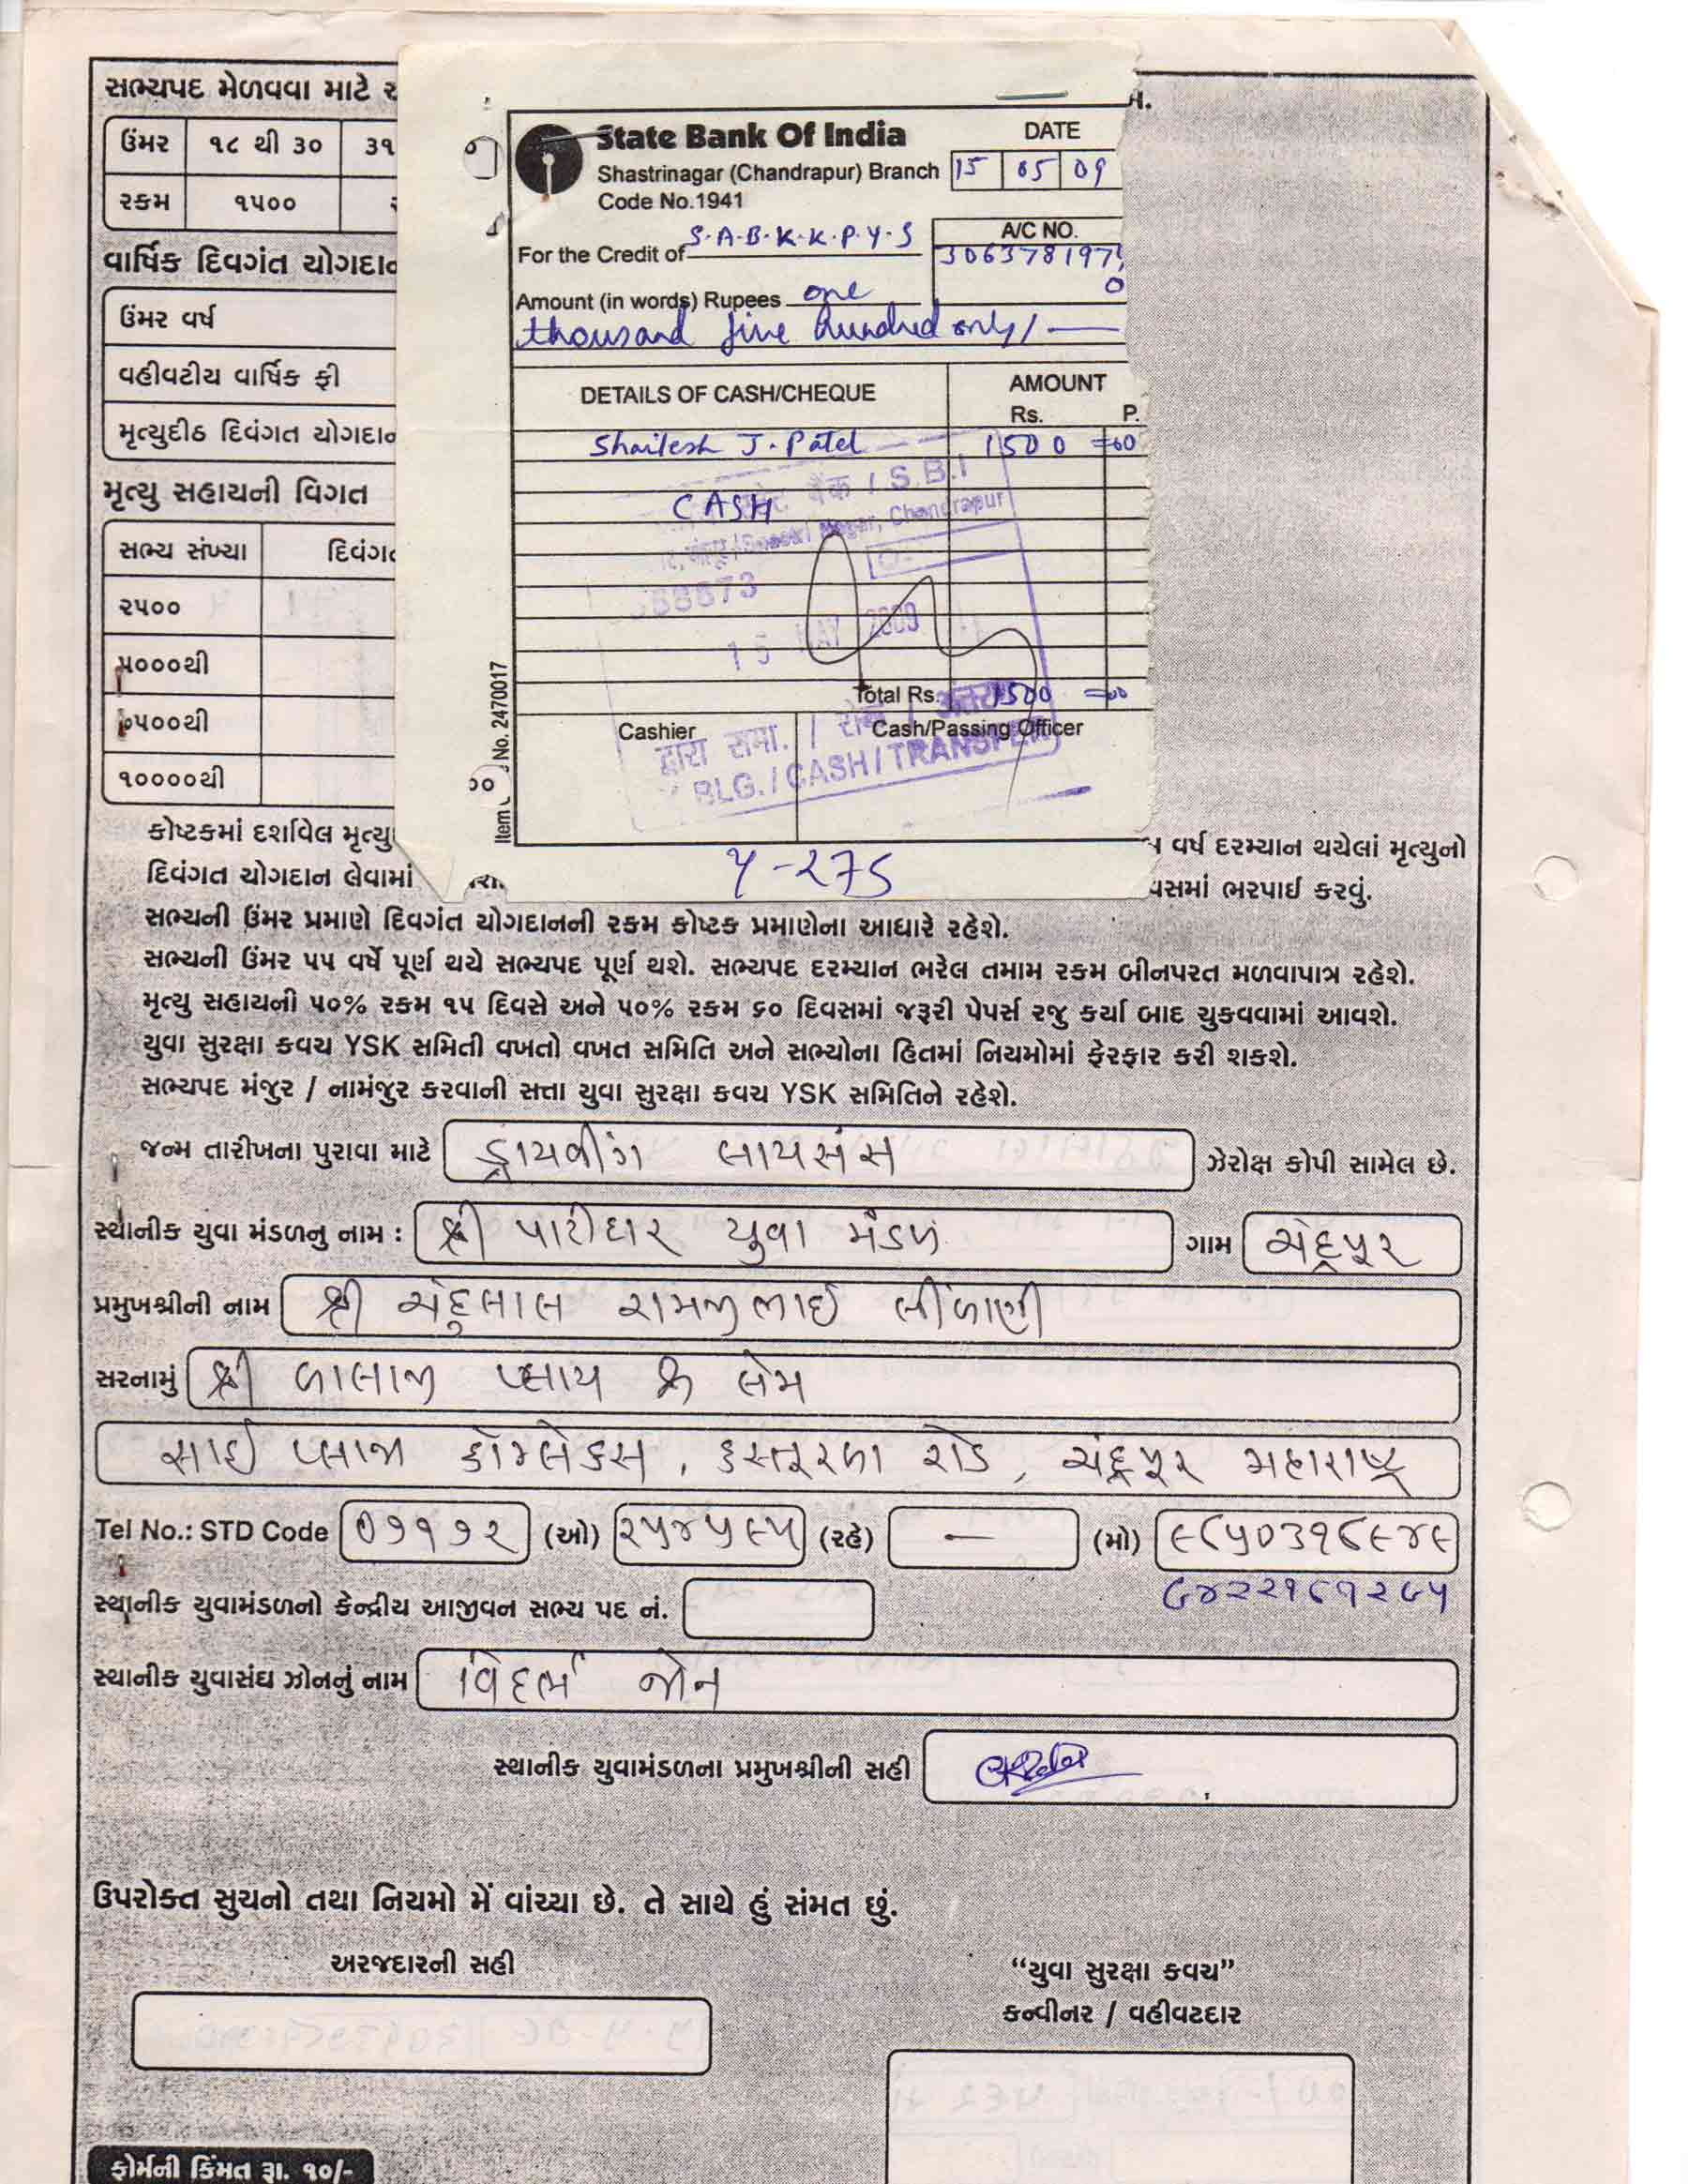 સભ્યપદ મેળવવા માટે
ઉંમર ૧૮ થી ૩૦ ૩૧
રકમ ૧૫૦૦
વાર્ષિક દિવગંત યોગદાન
ઉંમર વર્ષ
વહીવટીય વાર્ષિક ફી
મૃત્યુદીઠ દિવંગત યોગદાન
મૃત્યુ સહાયની વિગત
સભ્ય સંખ્યા દિવંગત
૨૫૦૦
૫૦૦૦થી
૭૫૦૦થી
૧૦૦૦૦થી
State Bank Of India
DATE
Shastrinagar (Chandrapur) Branch 15 05 09
Code No.1941
For the Credit of S.A.B.K.K.P.Y.S
A/C NO.
30637819710
Amount (in words) Rupees one
thousand five hundred only/-
DETAILS OF CASH/CHEQUE AMOUNT
Rs. P.
Shailesh J. Patel 1500 =00
CASH
S.B.I
Nagar, Chandrapur
88873
15 MAY 2009
Total Rs. 1500 =00
Cashier Cash/Passing Officer
द्वारा समा.
BLG. / CASH / TRANSFER
No. 2470017
Y-275
કોષ્ટકમાં દર્શાવેલ વર્ષ દરમ્યાન થયેલાં મૃત્યુનો
દિવંગત યોગદાન લેવામાં ભરપાઈ કરવું.
સભ્યની ઉંમર પ્રમાણે દિવગંત યોગદાનની રકમ કોષ્ટક પ્રમાણેના આધારે રહેશે.
સભ્યની ઉંમર ૫૫ વર્ષે પૂર્ણ થયે સભ્યપદ પૂર્ણ થશે. સભ્યપદ દરમ્યાન ભરેલ તમામ રકમ બીનપરત મળવાપાત્ર રહેશે.
મૃત્યુ સહાયની ૫૦% રકમ ૧૫ દિવસે અને ૫૦% રકમ ૬૦ દિવસમાં જરૂરી પેપર્સ રજુ કર્યા બાદ ચુકવવામાં આવશે.
યુવા સુરક્ષા કવચ YSK સમિતી વખતો વખત સમિતિ અને સભ્યોના હિતમાં નિયમોમાં ફેરફાર કરી શકશે.
સભ્યપદ મંજુર / નામંજુર કરવાની સત્તા યુવા સુરક્ષા કવચ YSK સમિતિને રહેશે.
જન્મ તારીખના પુરાવા માટે ડ્રાયવીંગ લાયસંસ ઝેરોક્ષ કોપી સામેલ છે.
સ્થાનીક યુવા મંડળનુ નામ : શ્રી પાટીદાર યુવા મંડળ ગામ ચંદ્રપૂર
પ્રમુખશ્રીની નામ શ્રી ચંદુલાલ રામજીભાઈ લીંબાણી
સરનામું શ્રી બાલાજી પ્લાય ફ્રેમ
સાઈ પ્લાજા કોમ્લેકસ, કસ્તૂરબા રોડ, ચંદ્રપૂર મહારાષ્ટ્ર
Tel No.: STD Code ૦૭૧૭૨ (ઓ) ૨૫૪૫૯૫ (રહે) — (મો) ૯૮૫૦૩૧૬૯૪૯
૯૪૨૨૧૬૧૨૯૫
સ્થાનીક યુવામંડળનો કેન્દ્રીય આજીવન સભ્ય પદ નં.
સ્થાનીક યુવાસંઘ ઝોનનું નામ વિદર્ભ જોન
સ્થાનીક યુવામંડળના પ્રમુખશ્રીની સહી
ઉપરોક્ત સુચનો તથા નિયમો મેં વાંચ્યા છે. તે સાથે હું સંમત છું.
અરજદારની સહી
“યુવા સુરક્ષા કવચ”
કન્વીનર / વહીવટદાર
ફોર્મની કિંમત રૂા. ૧૦/-